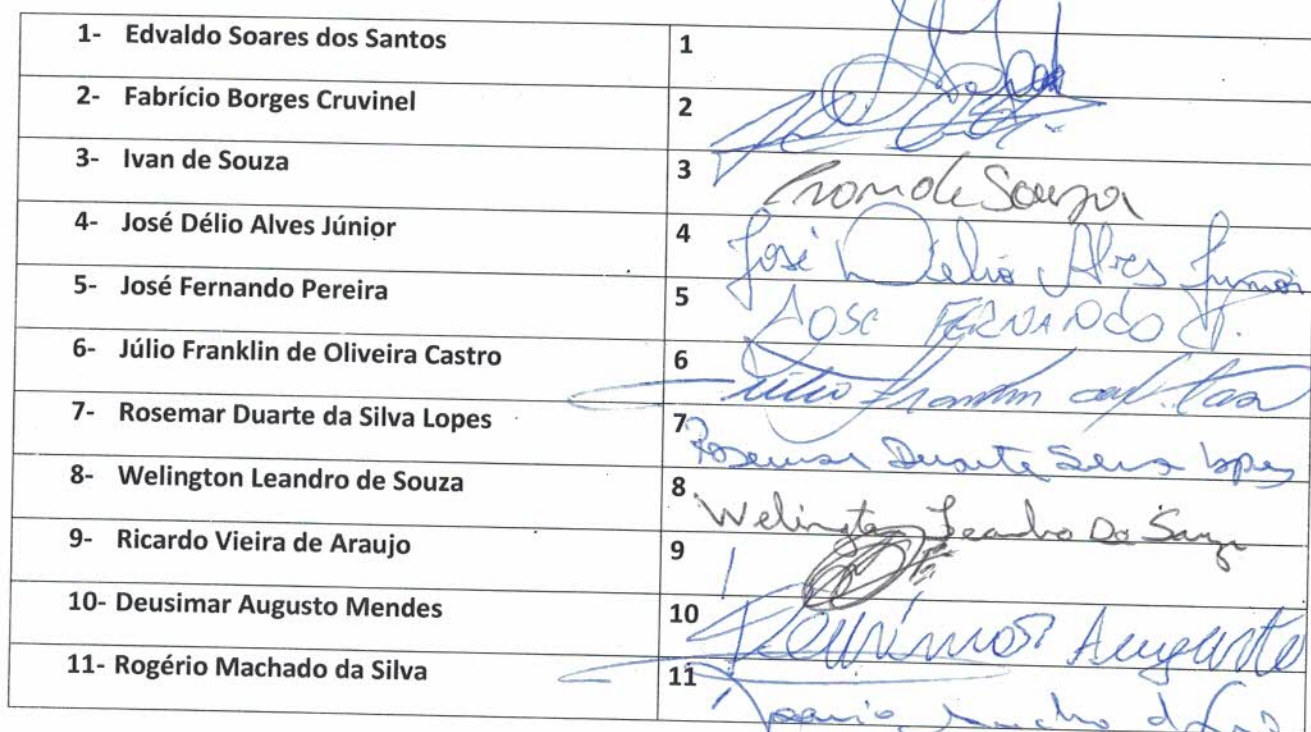 1- Edvaldo Soares dos Santos 1
2- Fabrício Borges Cruvinel 2
3- Ivan de Souza 3 Ivan de Souza
4- José Délio Alves Júnior 4 José Délio Alves Junior
5- José Fernando Pereira 5 JOSE FERNANDO P.
6- Júlio Franklin de Oliveira Castro 6
7- Rosemar Duarte da Silva Lopes 7 Rosemar Duarte Silva Lopes
8- Welington Leandro de Souza 8 Welington Leandro De Souza
9- Ricardo Vieira de Araujo 9
10- Deusimar Augusto Mendes 10
11- Rogério Machado da Silva 11